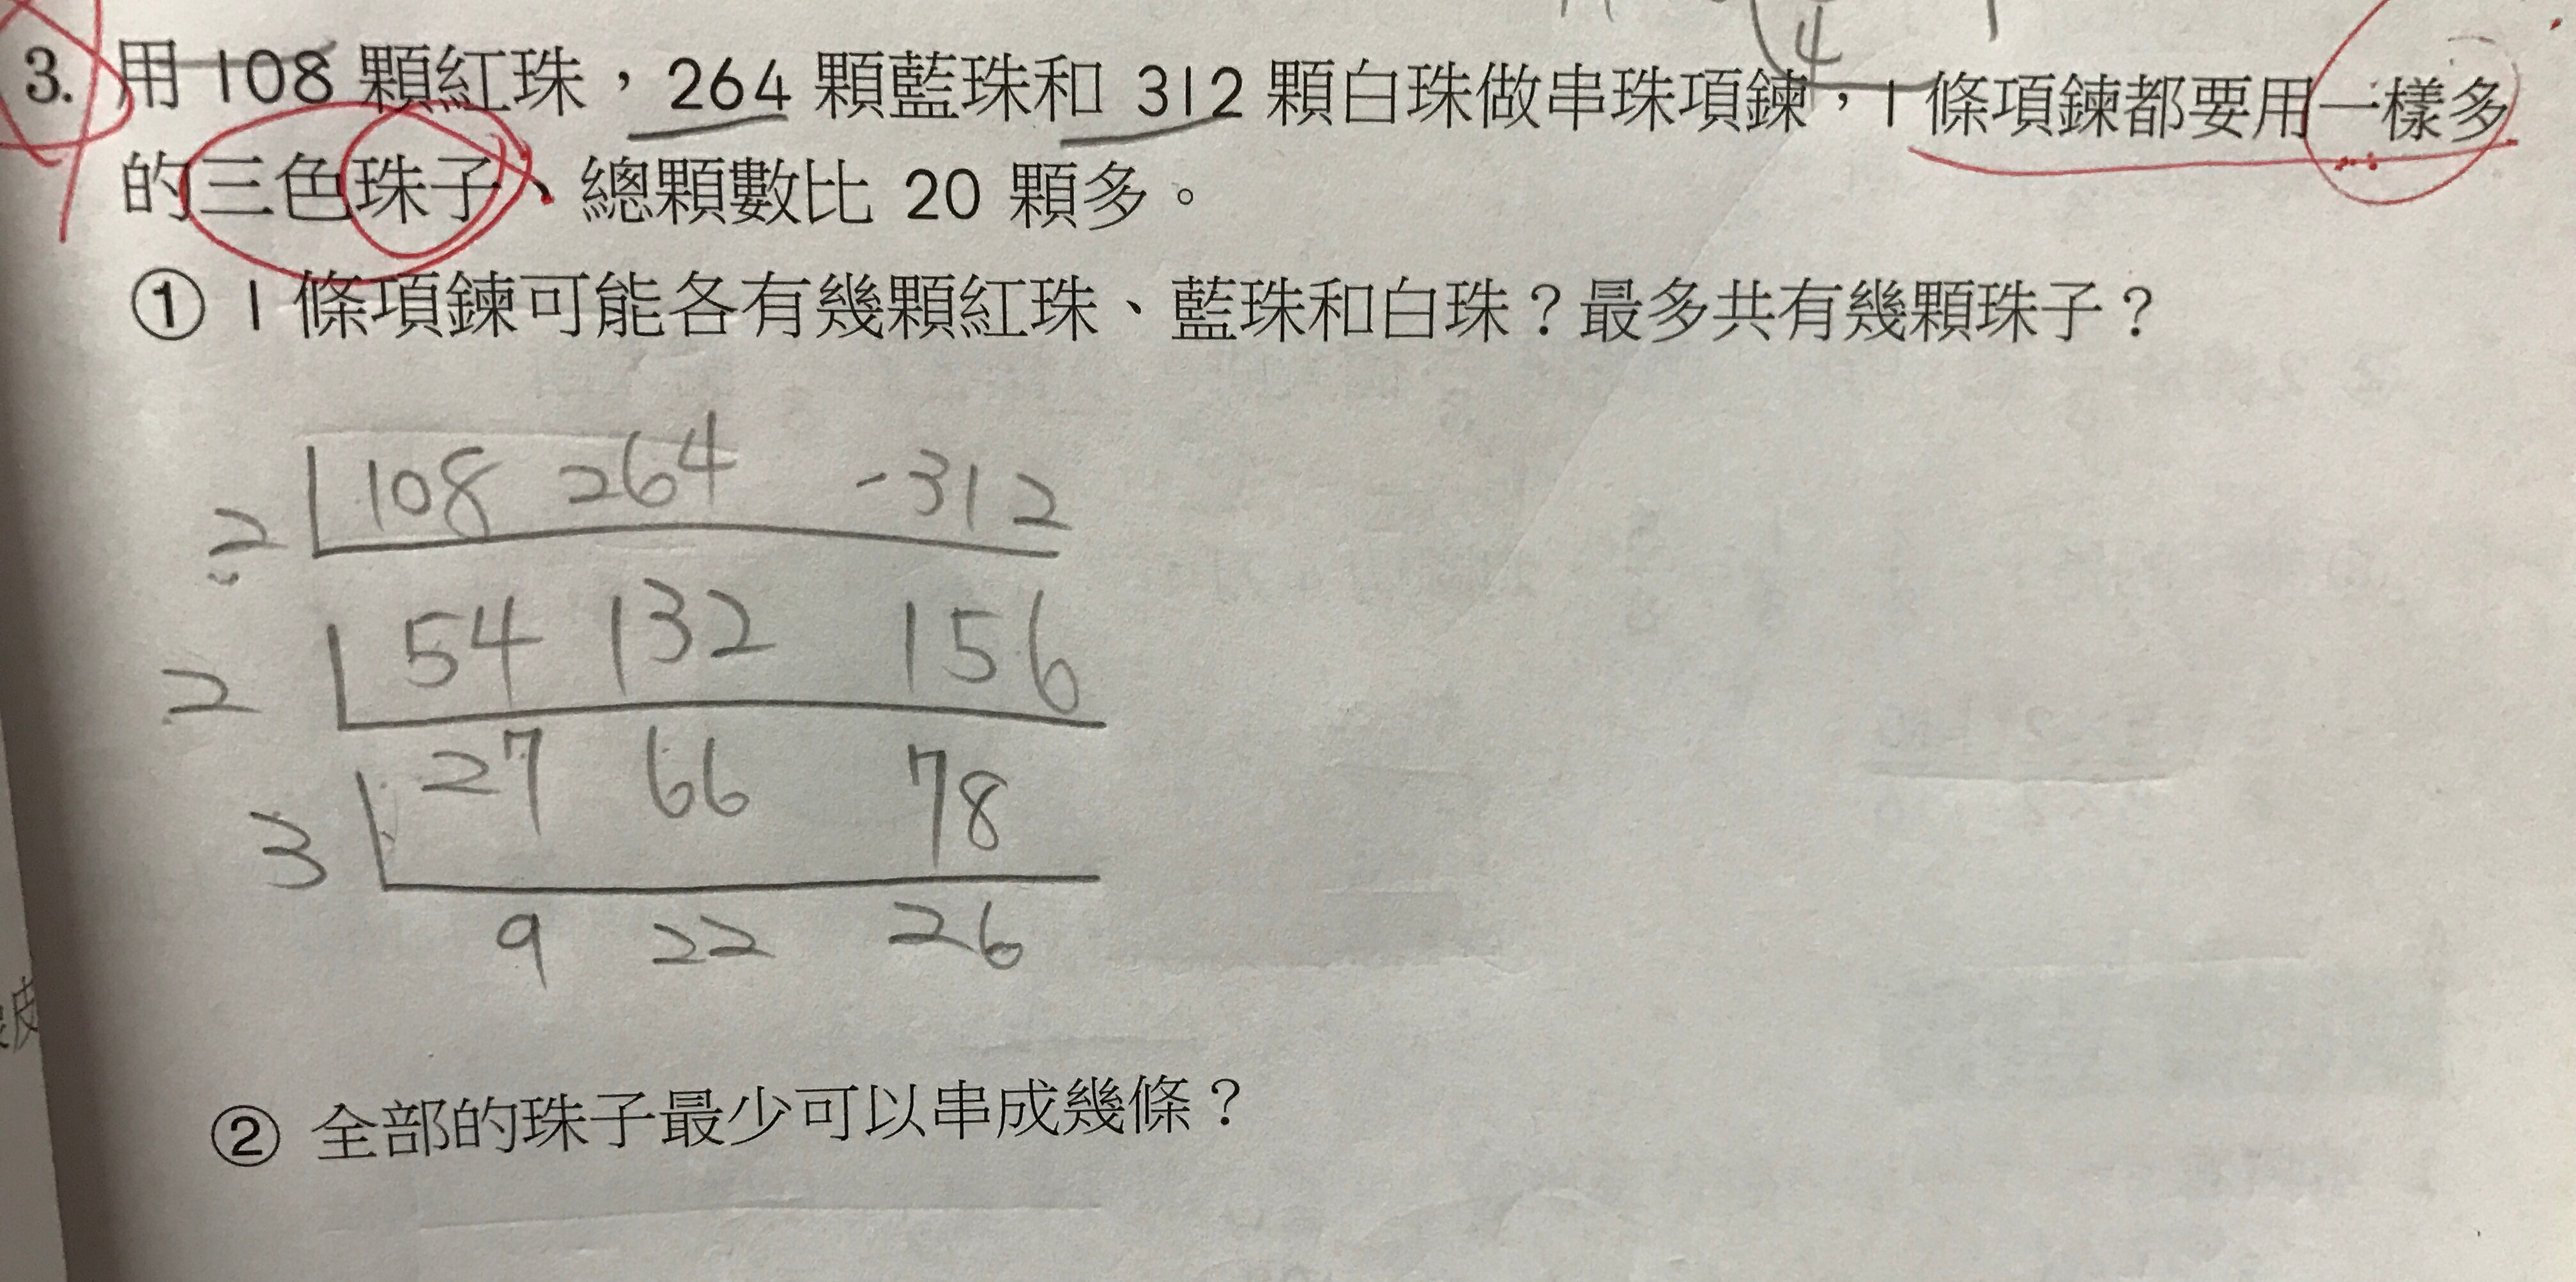 4
3. 用 108 顆紅珠，264 顆藍珠和 312 顆白珠做串珠項鍊，1 條項鍊都要用一樣多
的三色珠子、總顆數比 20 顆多。
① 1 條項鍊可能各有幾顆紅珠、藍珠和白珠？最多共有幾顆珠子？
2 108 264 -312
2 54 132 156
3 27 66 78
9 22 26
皮
② 全部的珠子最少可以串成幾條？